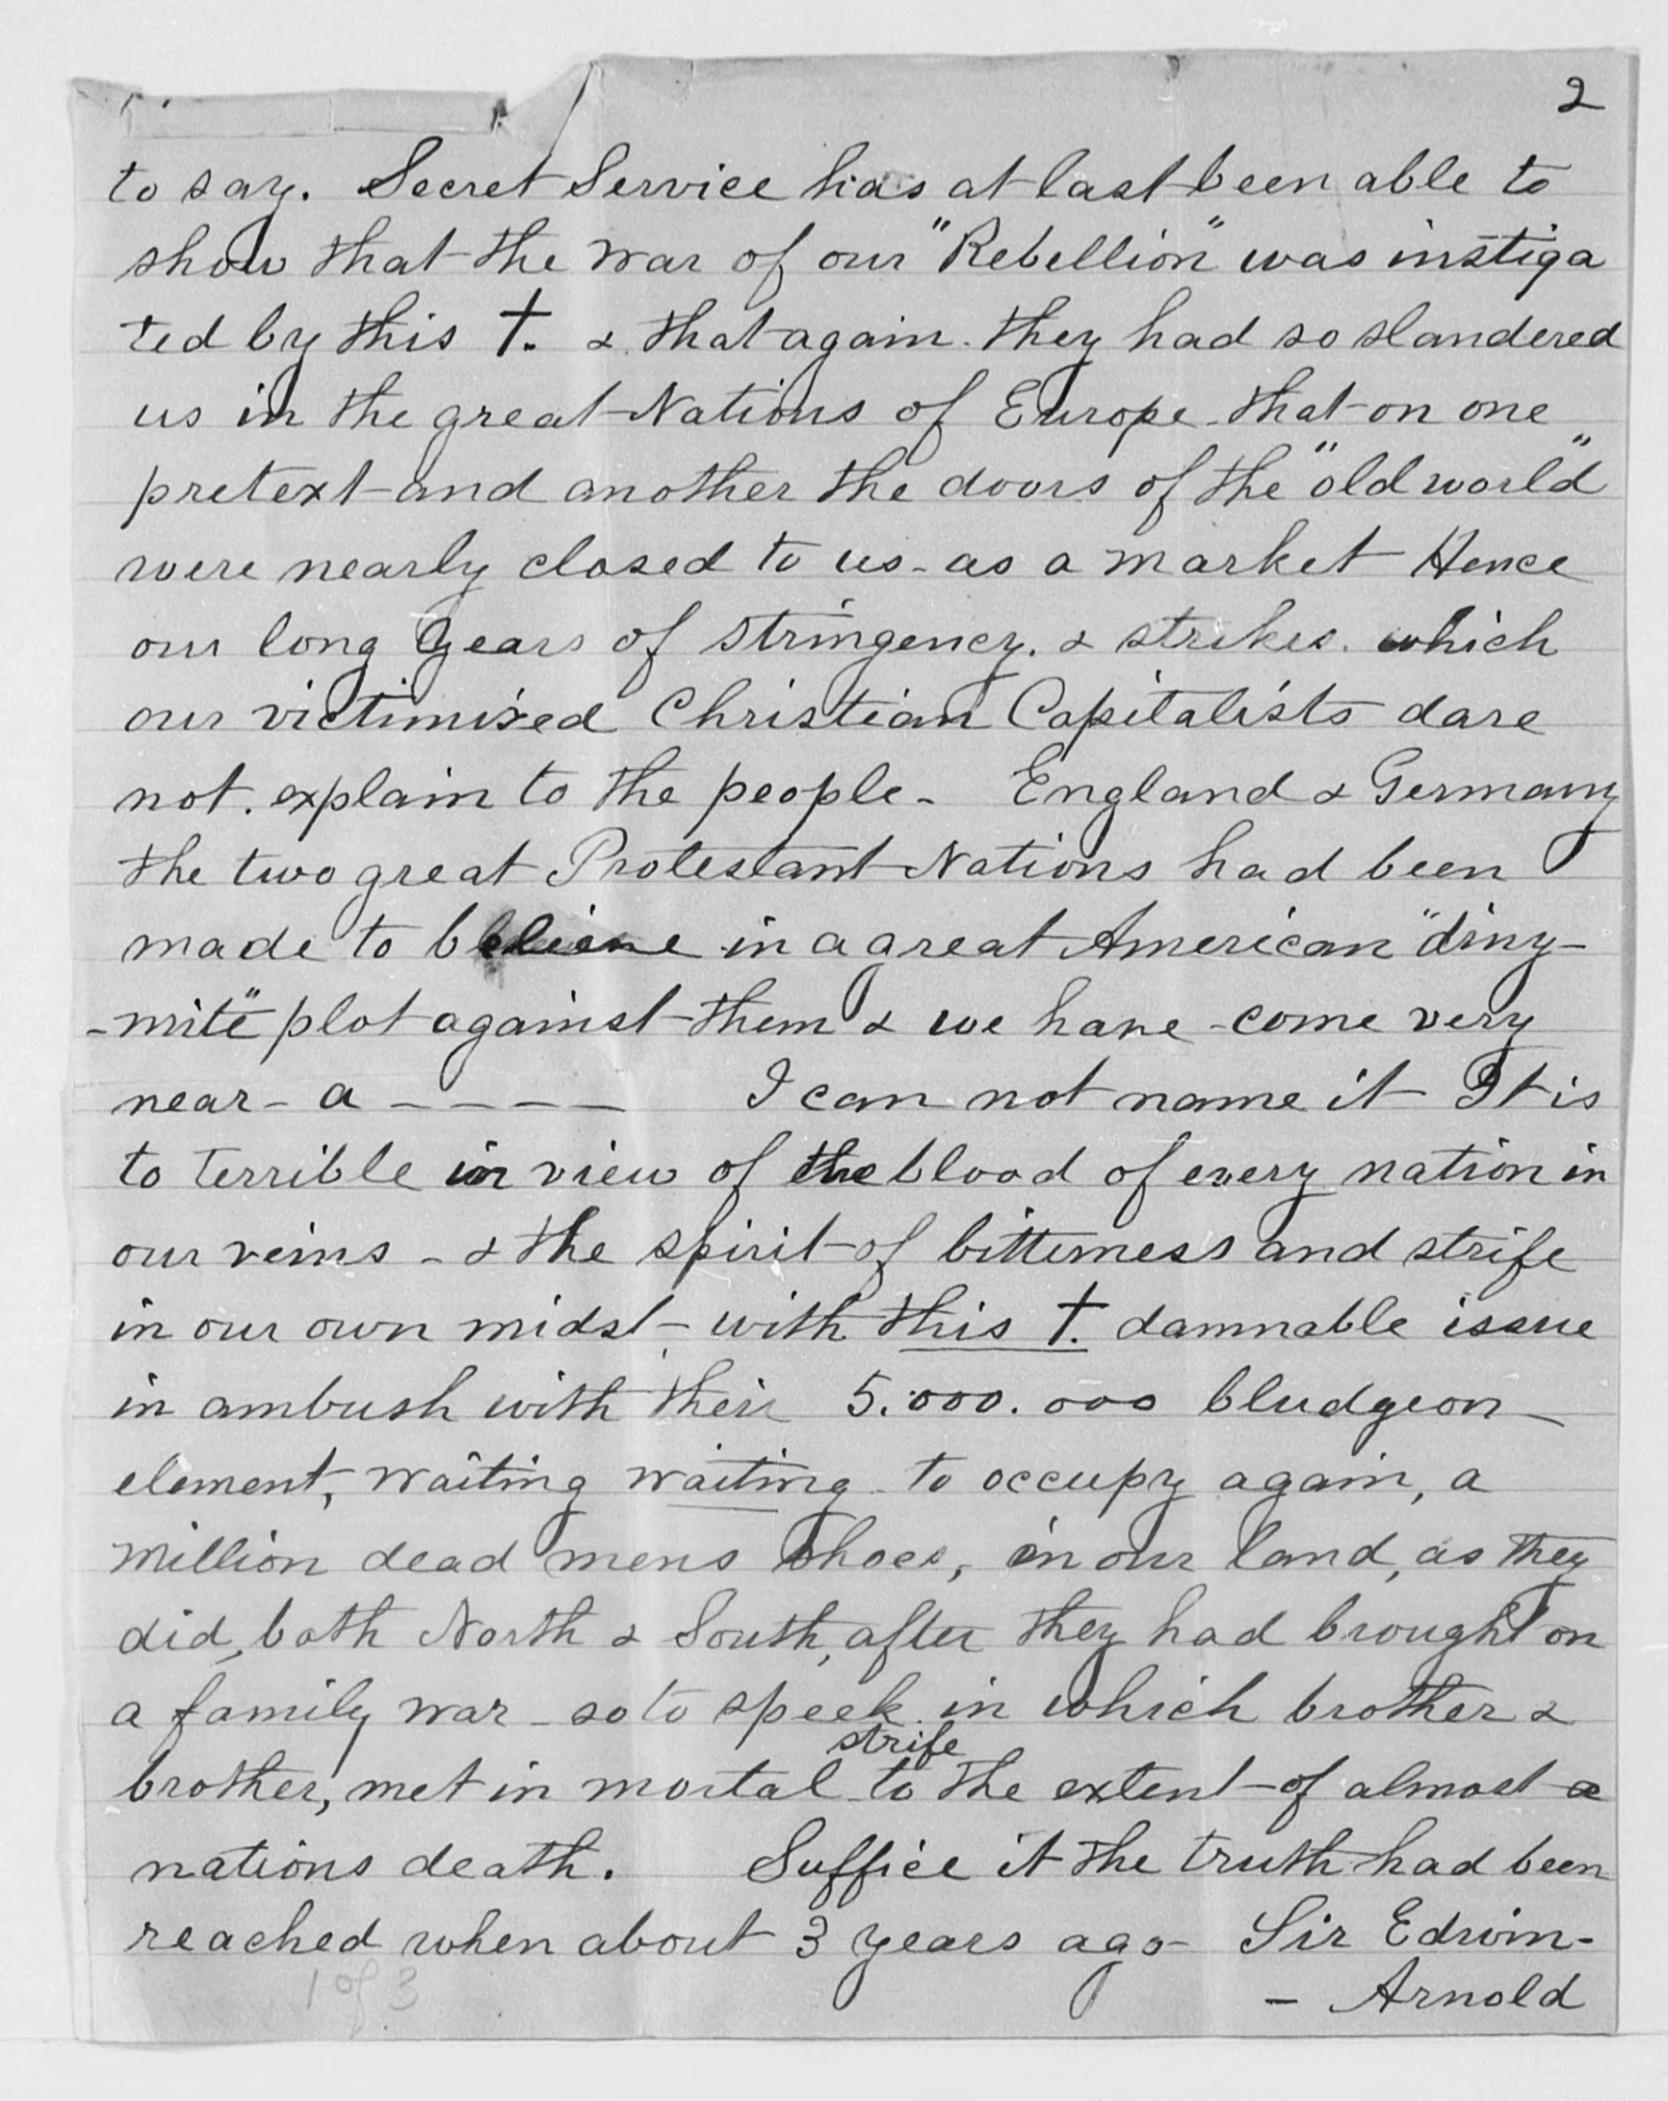 2
to say. Secret Service has at last been able to
show that the war of our "Rebellion" was instiga
ted by this †. & that again they had so slandered
us in the great Nations of Europe that on one
pretext and another the doors of the "old world"
were nearly closed to us - as a market Hence
our long years of stringency. & strikes. which
our victimised Christian Capitalists dare
not. explain to the people - England & Germany
the two great Protestant Nations had been
made to believe in a great American "diny-
-mite" plot against them & we have come very
near - a - - - - I can not name it It is
to terrible in view of the blood of every nation in
our veins - & the spirit of bitterness and strife
in our own midst - with this †. damnable issue
in ambush with their 5.000.000 bludgeon
element, waiting waiting to occupy again, a
million dead mens shoes, in our land, as they
did, both North & South, after they had brought on
a family war - so to speek in which brother &
strife
brother, met in mortal to the extent of almost a
nations death. Suffice it the truth had been
reached when about 3 years ago - Sir Edwin -
- Arnold
1 of 3